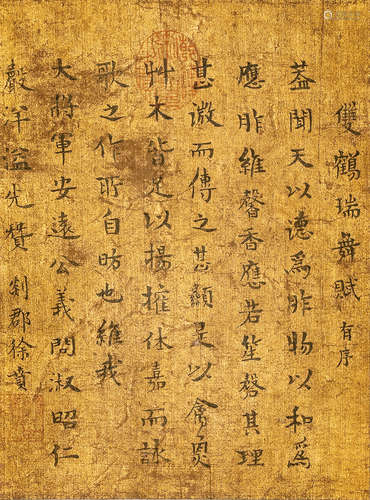 雙鶴瑞舞賦 有序
葢聞天以德爲昨物以和爲
應昨維馨香應若笙磬其理
甚微而傳之甚顯是以禽鳥
艸木皆足以揚搉休嘉而詠
歌之作所自昉也維我
大將軍安遠公義問淑昭仁
聲洋溢先贊 剡郡徐賁